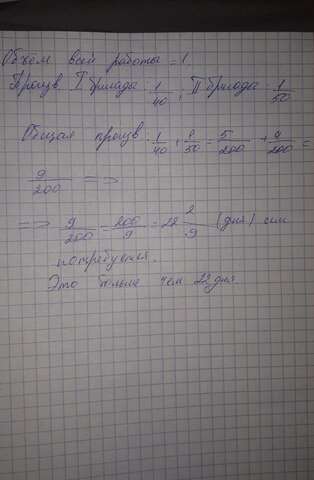 Объем всей работы = 1.
Произв. I бригады: 1/40, II бригада: 1/50
Общая произв: 1/40 + 1/50 = 5/200 + 4/200 =
9/200 =>
=> 9/200 = 200/9 = 22 2/9 (дня) им
потребуется.
Это больше чем 22 дня